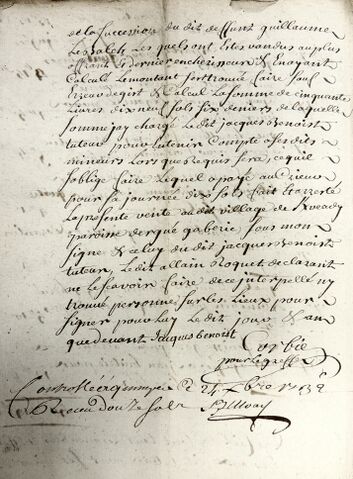 de la succession du dit deffunt guillaume
Le Balch Les quels ont Estes vandus au plus
offrant & dernier encherisseur & En ayant
Calculé Le montant sest trouvé faire sauf
Erreur de gist & Calcul La somme de cinquante
Livres dix neuf sols six deniers de laquelle
somme jay chargé Le dit jacques Benoist
tuteur pour En tenir Compte a ses dits
mineurs Lors que Requis sera, ce quil
soblige faire Lequel a payé aux
pour sa journée dix sols fait & arresté
La presente vente au dit village de
paroisse dergué gaberic sous mon
signe & celuy du dit jacques Benoist
tuteur, Le dit allain Roquet declarant
ne scavoir faire de ce interpellé ny
trouvé personne sur les Lieux pour
signer pour luy Le dit jour & an
que devant Jacques Benoist
Corbie
pour Le greffe
Controllé a quimper Le 24 xbre 1732
Receu douze sols